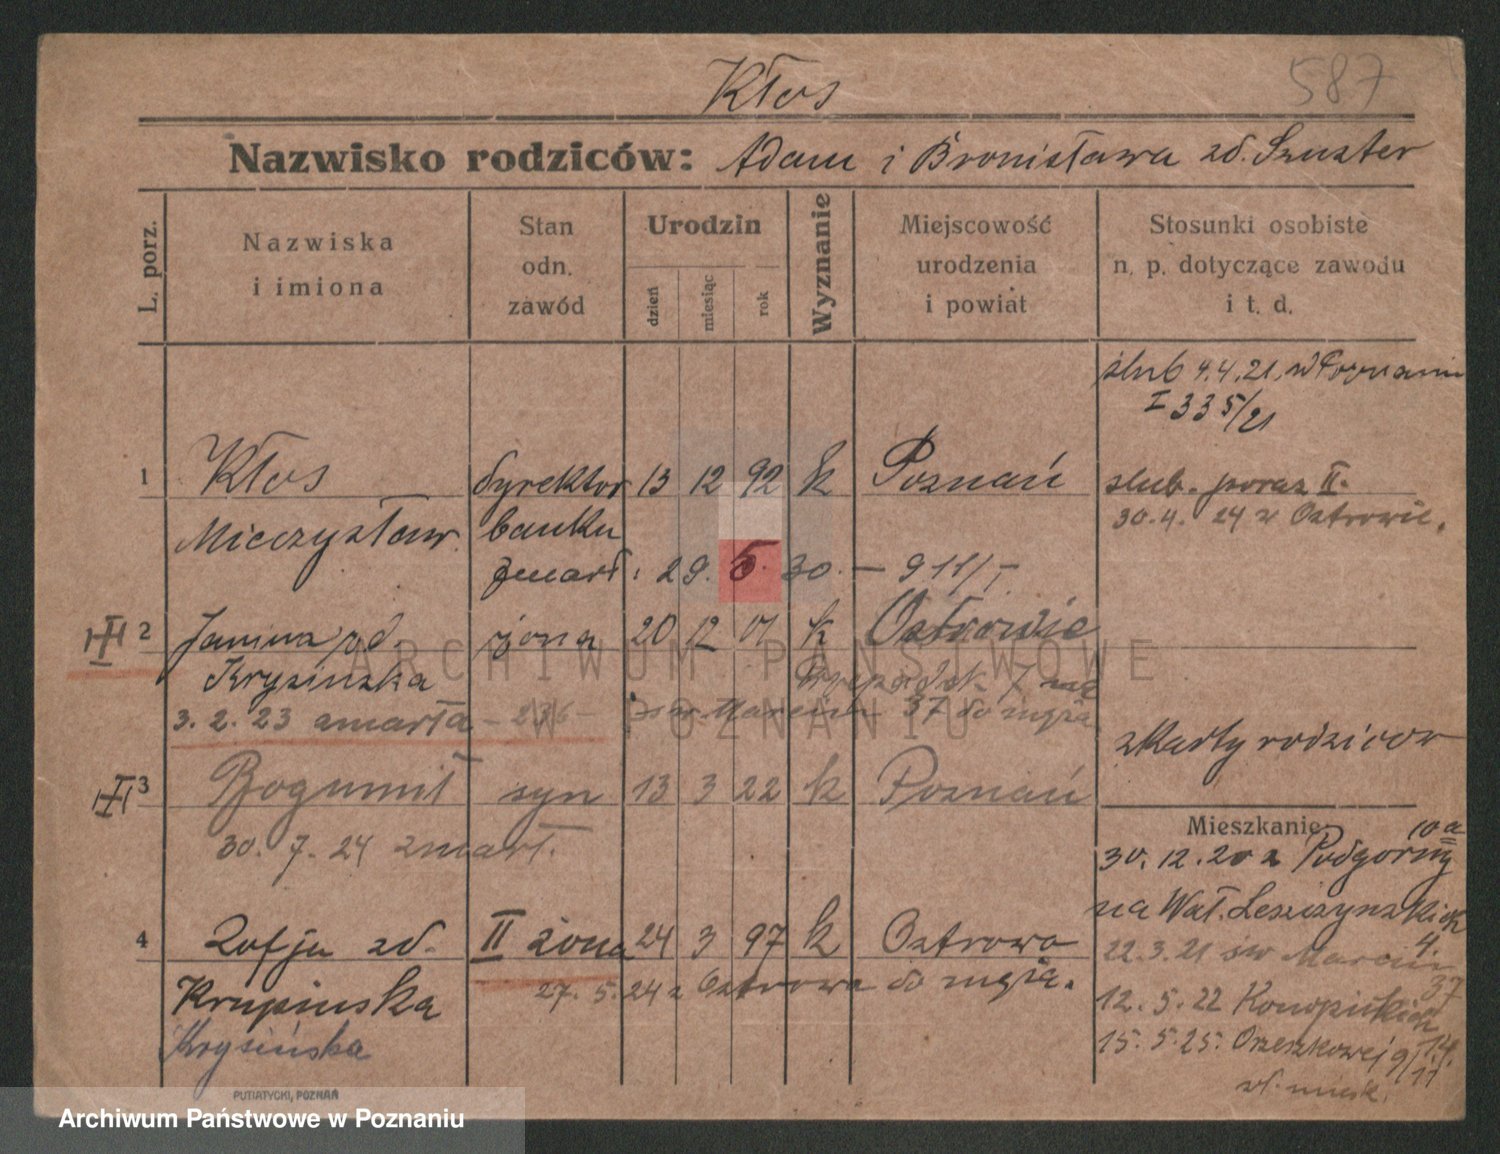 587
Kłos
Nazwisko rodziców: Adam i Bronisława zd. Szuster
L. porz.
Nazwiska i imiona
Stan odn. zawód
Urodzin
dzień miesiąc rok
Wyznanie
Miejscowość urodzenia i powiat
Stosunki osobiste n. p. dotyczące zawodu i t. d.
ślub 4.4.21. w Poznaniu
I 335/21
1 Kłos dyrektor 13 12 92 k Poznań ślub poraz II.
Mieczysław banku 30.4. 24 w Ostrowie.
zmarł: 29. 5. 30. — 911/I
2 Janina zd. żona 20 12 01 k Ostrowie
Krysinska 7
3. 2. 23 zmarła – 236 – św. Marcin 37 do męża
z karty rodziców
3 Bogumił syn 13 3 22 k Poznań
30. 7. 24 zmarł.
Mieszkanie
30. 12. 20 z Podgórny 10a
na Wał. Leszczynskich 4.
4 Zofja zd. II żona 24 3 97 k Ostrowo
22.3.21 św Marcin 37
Krupinska 27. 5. 24 z Ostrowa do męża.
12. 5. 22 Konopnickiej 14.
Krysińska
15. 5. 25. Orzeszkowej 9/11
wł. miesk.
PUTIATYCKI, POZNAŃ
ARCHIWUM PAŃSTWOWE
W POZNANIU
Archiwum Państwowe w Poznaniu